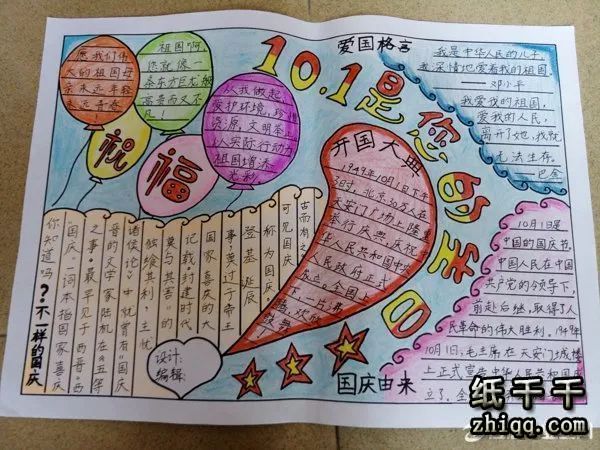 愿我们伟
大的祖国母
亲永远年轻
永远青春
！
祖国啊
你就像一
条东方巨龙般
高贵而又不
凡！
从我做起
爱护环境，珍惜
资源，文明茶
以实际行动为
祖国增添
光彩
祝
福
10.1是您的生日
爱国格言
我是中华人民的儿子，
我深情地爱着我的祖国。
邓小平
我爱我的祖国，
爱我的人民，
离开了她，我就
无法生存。
—巴金
开国大典
1949年10月1日下午
3时，北京30万人在
天安门广场上隆重
举行庆典，庆祝
华人民共和国中央
人民政府成
立。全国上
下一片沸
腾，欢欣
鼓舞
10月1日是
中国的国庆节
中国人民在中国
共产党的领导下，
前赴后继，取得了人
民革命的伟大胜利。1949年
10月1日，毛主席在天安门城楼
上正式宣告中华人民共和国成
立了。全
国庆由来
你知道吗？不一样的国庆
“国庆”一词本指国家喜庆
之事，最早见于西晋。西
晋的文学家陆机在《五等
诸侯论》中就曾有“国庆
独飨其利，主忧
莫与其害”的
记载。封建时代
国家喜庆的大
事，莫过于帝王
登基、诞辰
称为国庆。
可见国庆
古而有之
设计:
编辑:
纸千千
zhiqq.com